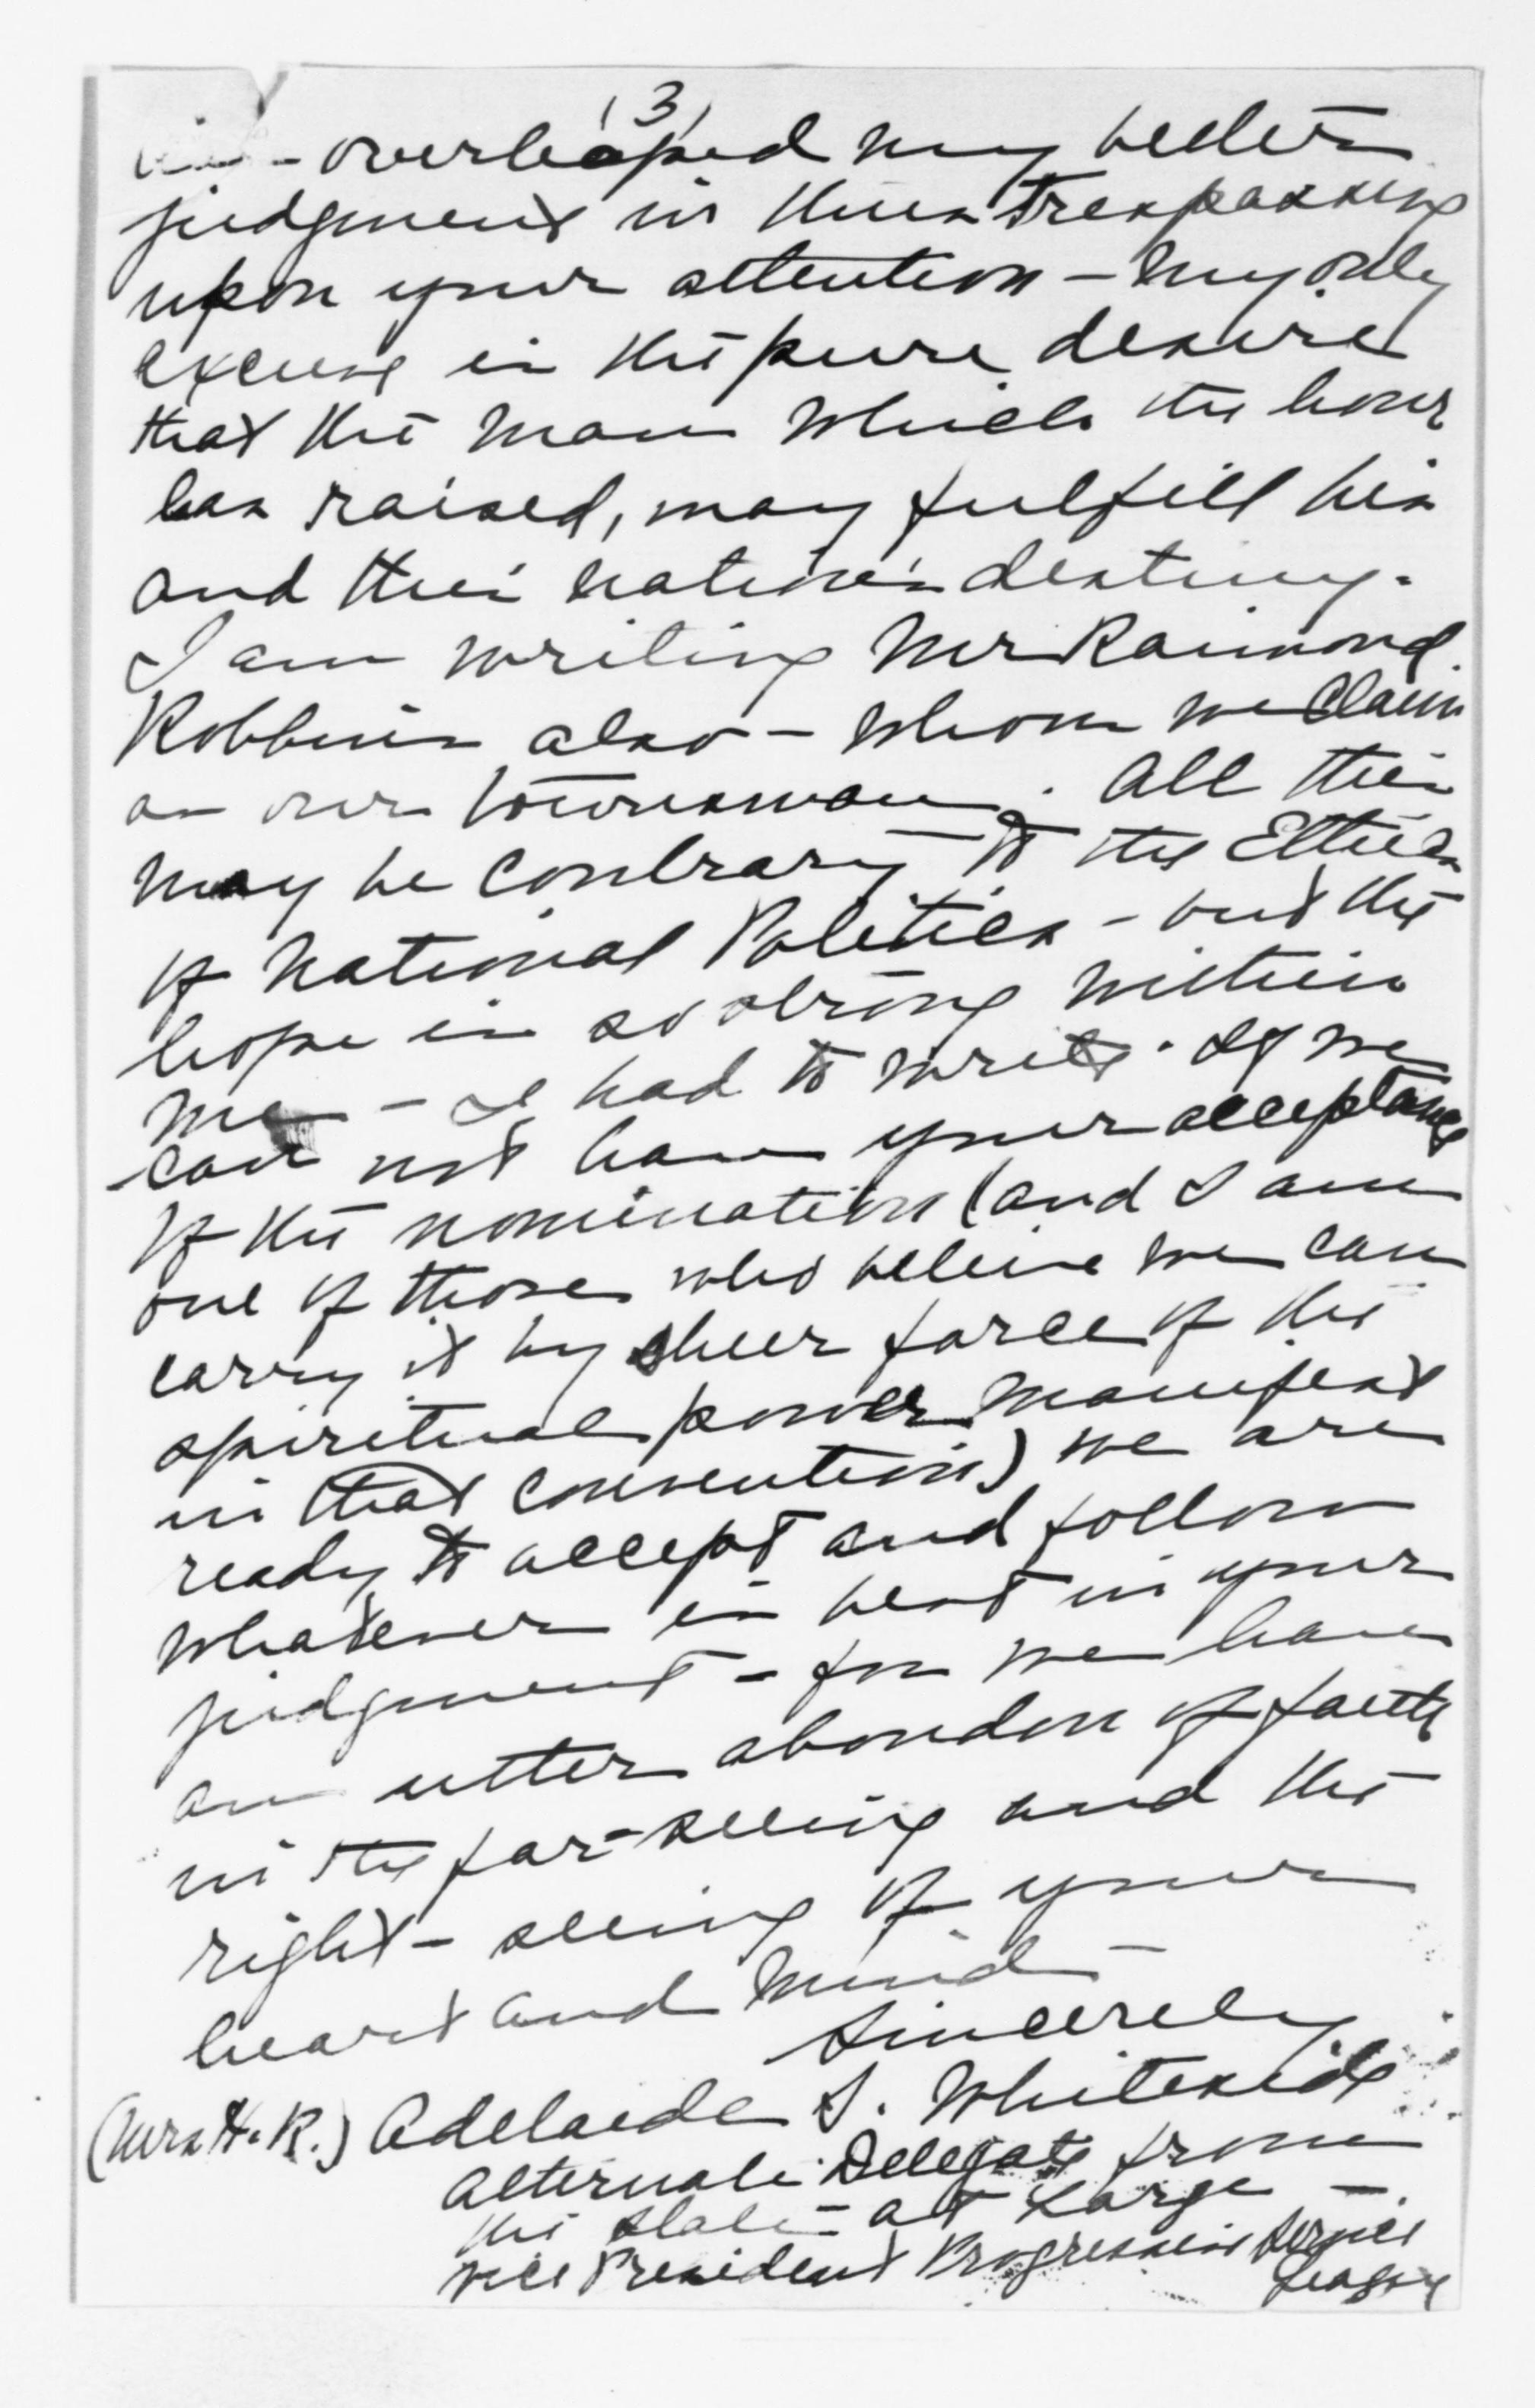 (3)
- overleaped my better
judgment in thus trespassing
upon your attention - My only
excuse is the pure desire
that the man which the hour
has raised, may fulfill his
and this nation's destiny.
I am writing Mr Raimond
Robbins also - whom we claim
as our townsman. All this
may be contrary to the Ethics
of National Politics - but the
hope is so strong within
me - I had to write. If we
can not have your acceptance
of the nomination (and I am
one of those who believe we can
carry it by sheer force of the
spiritual power manifest
in that convention) we are
ready to accept and follow
whatever is best in your
judgment - for we have
an utter abandon of faith
in the far-seeing and the
right-seeing of your
heart and mind -
Sincerely
(Mrs H. R.) Adelaide S. Whiteside
Alternate Delegate from
the State - at Large -
Vice President Progressive Service
League